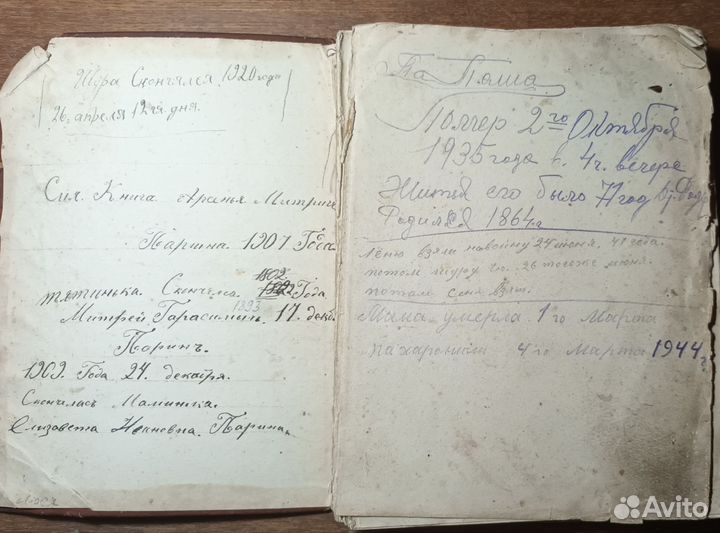 Шура Скончался 1920 года
26. апреля 12 го. дня.
Сия. Книга. Митрича
Парина. 1907 Года
тятинька. Скончался. 1902 Года
1893
Митрей Гарасимычь. 17. дека.
Паринъ.
1909. Года 24. декабря.
Скончалась Маминька.
Елизавета Ивановна. Парина.
Папаша.
Помер 2го Октября
1935 года в. 4 ч. вечера
Жития его было 71 год
Родился 1864 г
Лёню взяли на войну 24 июня. 41 года.
потом шуру 26 тогоже июня.
потом взяли.
Мама умерла. 1 го Марта
пахаронили 4 го Марта 1944 г
Avito